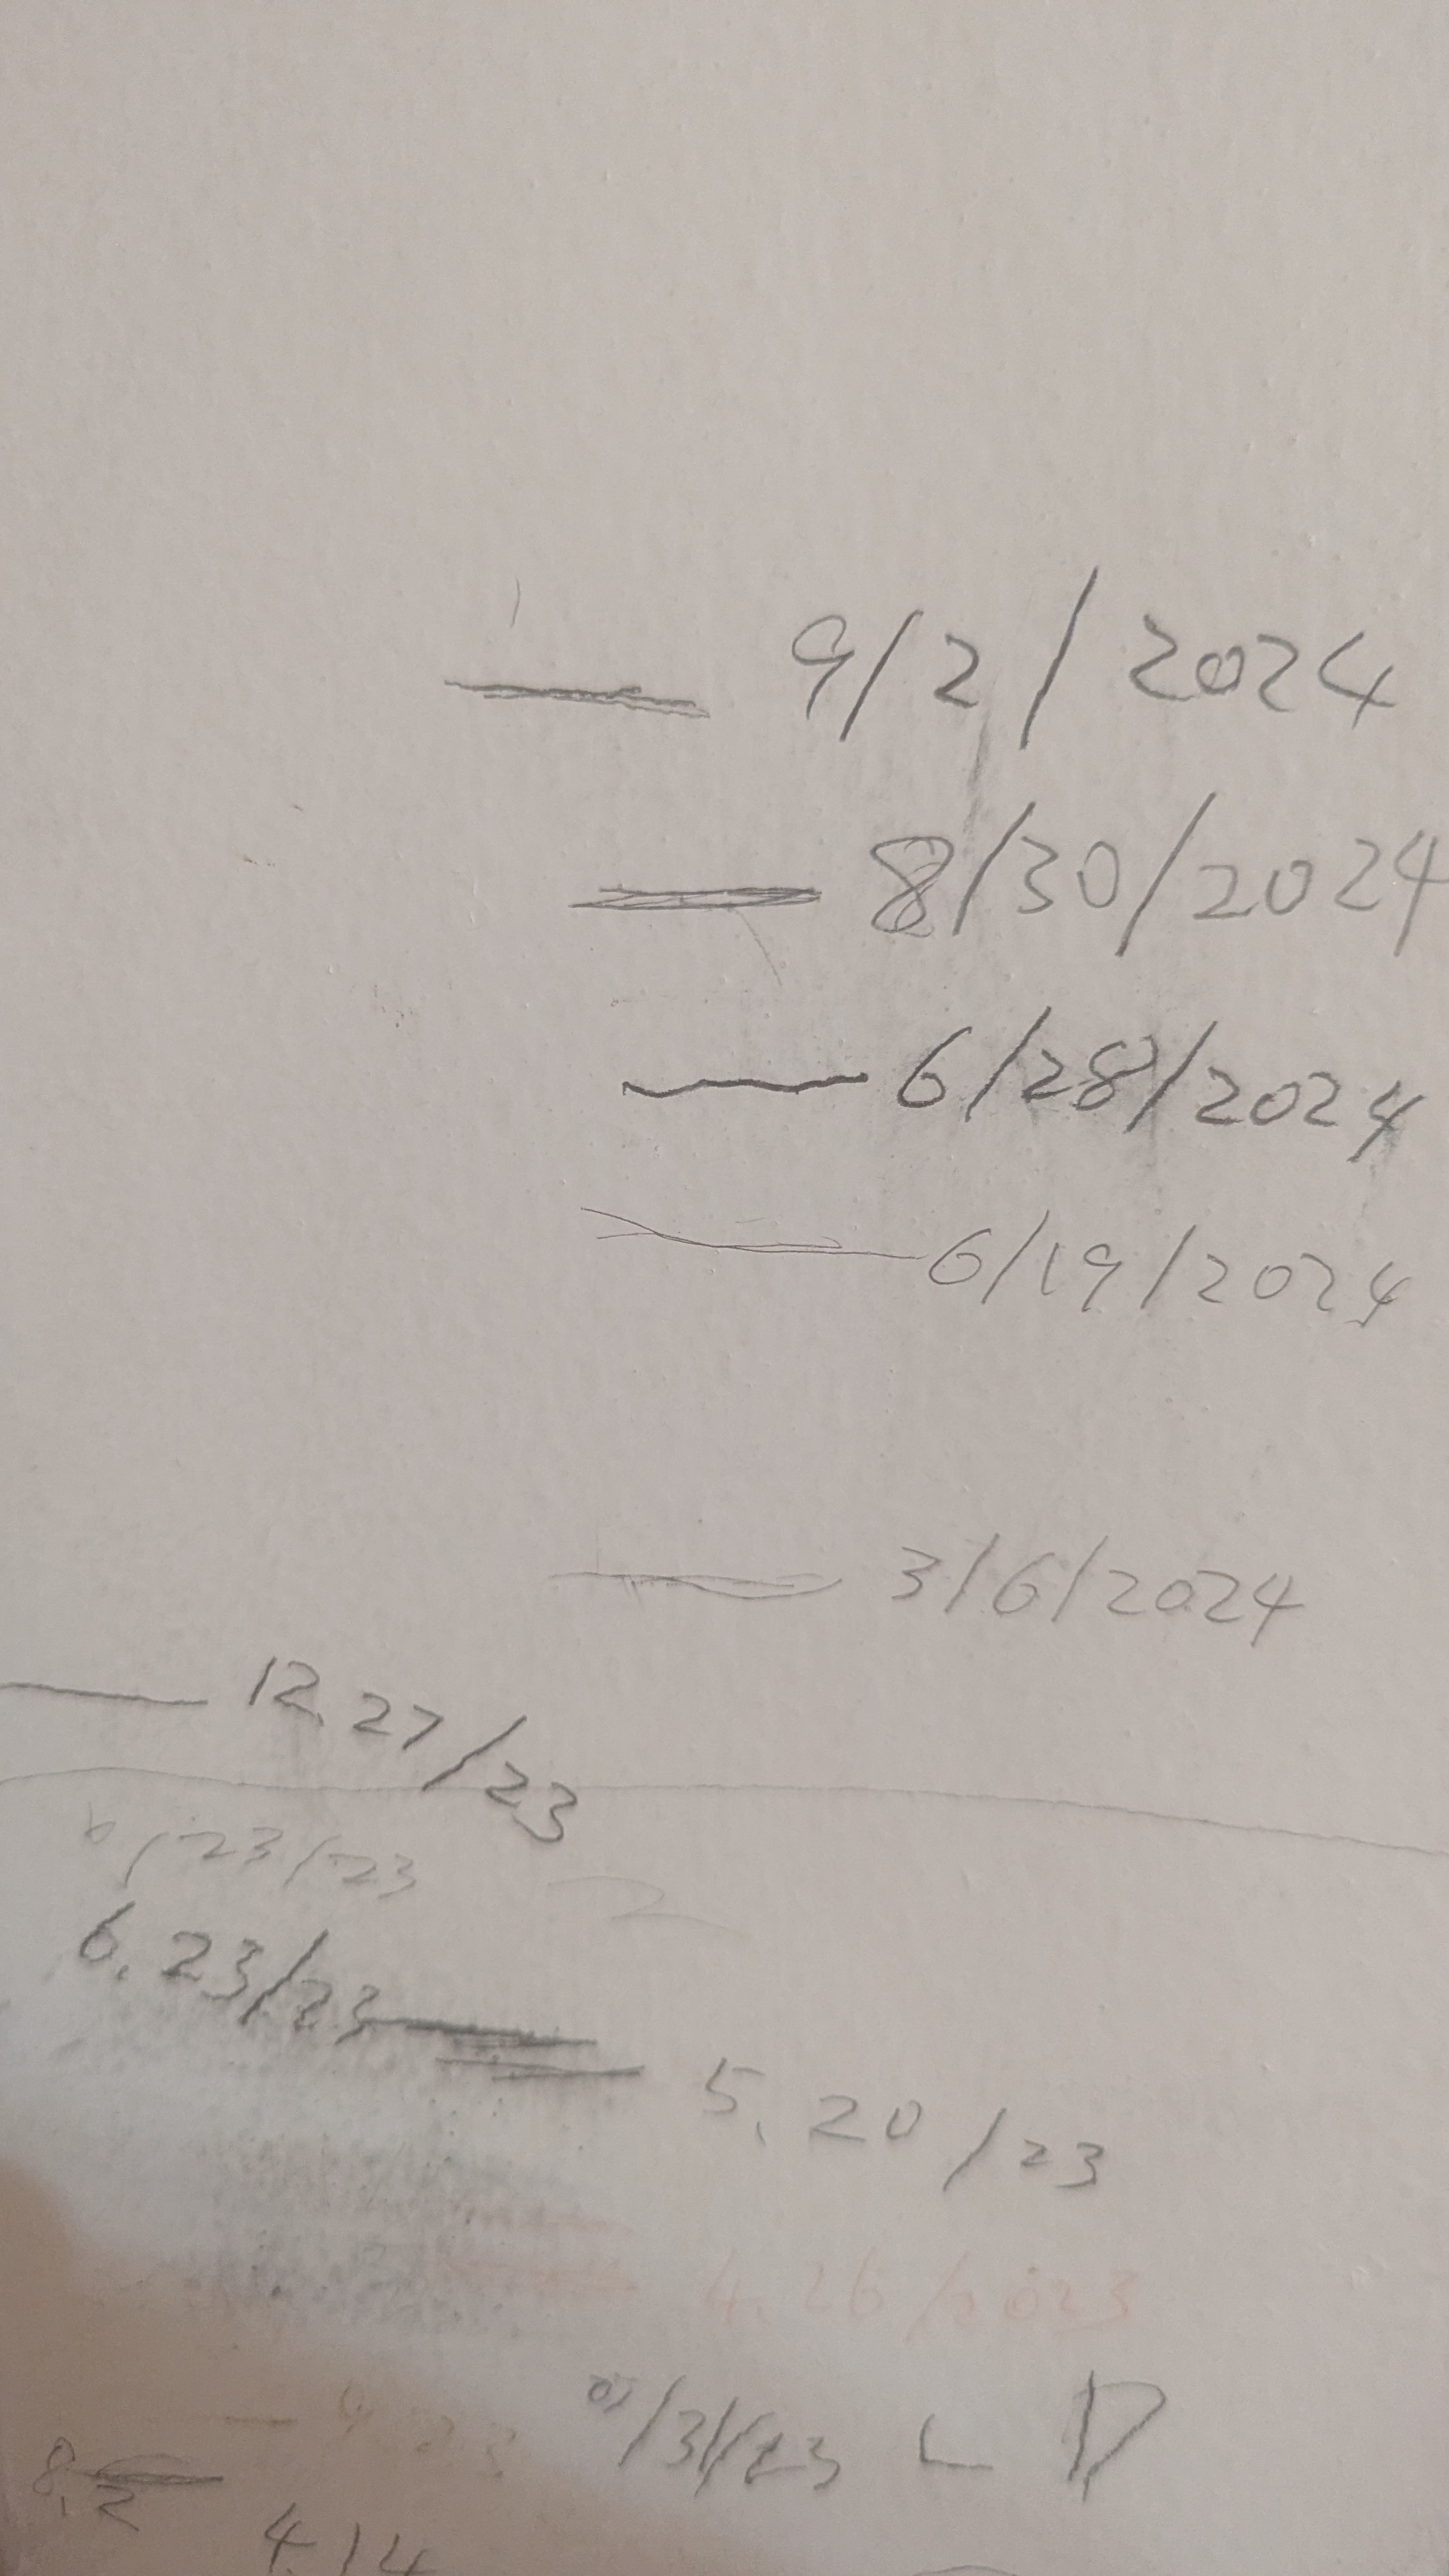 9/2/2024
8/30/2024
6/28/2024
6/19/2024
3/6/2024
12.27/23
6/23/23
6.23/23
5.20/23
4.26/2023
/31/23
8.2
4.14